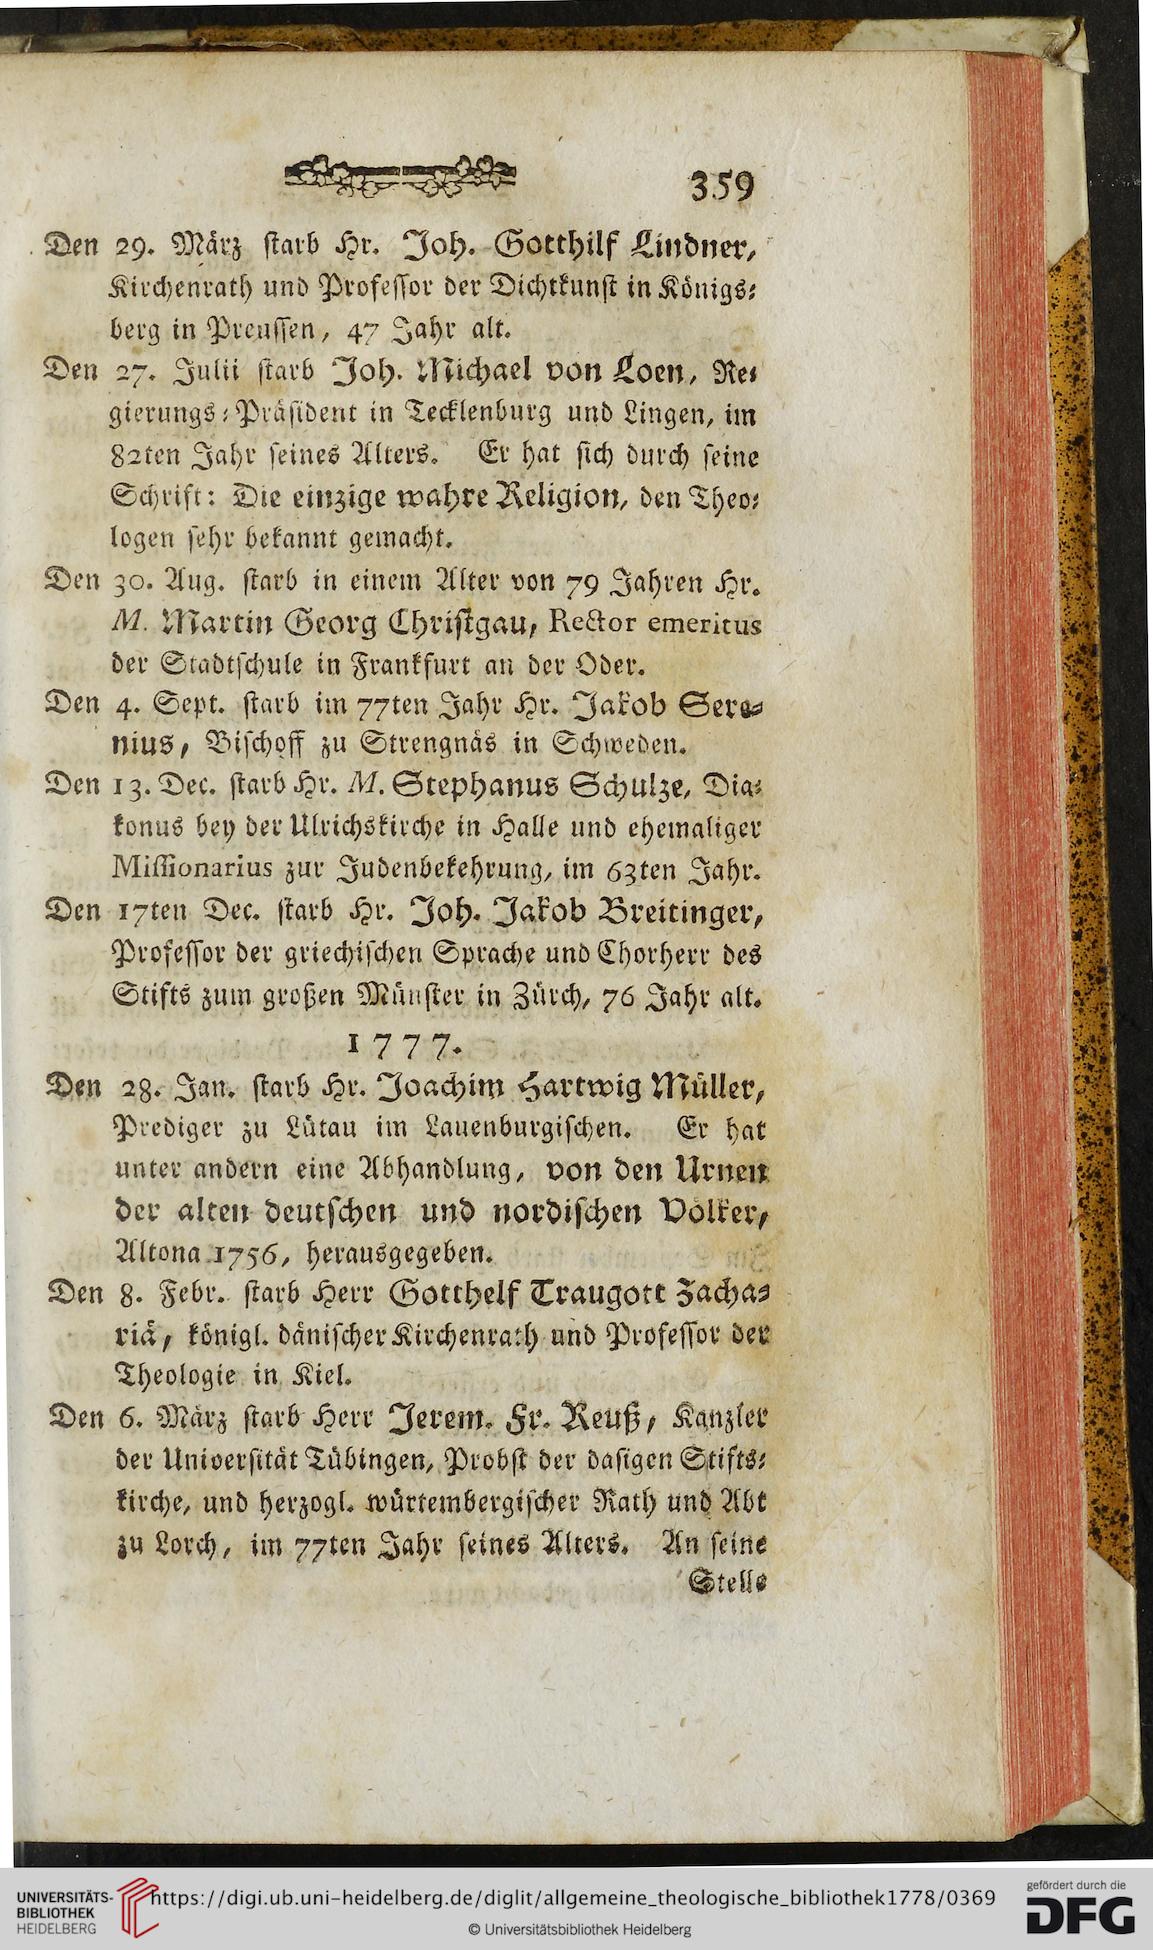 359
Den 29. März starb Hr. Joh. Gotthilf Lindner,
Kirchenrath und Professor der Dichtkunst in Königs-
berg in Preussen, 47 Jahr alt.
Den 27. Julii starb Joh. Michael von Loen, Re-
gierungs-Präsident in Tecklenburg und Lingen, im
82ten Jahr seines Alters. Er hat sich durch seine
Schrift: Die einzige wahre Religion, den Theo-
logen sehr bekannt gemacht.
Den 30. Aug. starb in einem Alter von 79 Jahren Hr.
M. Martin Georg Christgau, Rector emeritus
der Stadtschule in Frankfurt an der Oder.
Den 4. Sept. starb im 77ten Jahr Hr. Jakob Sere-
nius, Bischoff zu Strengnäs in Schweden.
Den 13. Dec. starb Hr. M. Stephanus Schulze, Dia-
konus bey der Ulrichskirche in Halle und ehemaliger
Missionarius zur Judenbekehrung, im 63ten Jahr.
Den 17ten Dec. starb Hr. Joh. Jakob Breitinger,
Professor der griechischen Sprache und Chorherr des
Stifts zum großen Münster in Zürch, 76 Jahr alt.
1777.
Den 28. Jan. starb Hr. Joachim Hartwig Müller,
Prediger zu Lütau im Lauenburgischen. Er hat
unter andern eine Abhandlung, von den Urnen
der alten deutschen und nordischen Völker,
Altona 1756, herausgegeben.
Den 8. Febr. starb Herr Gotthelf Traugott Zacha-
riä, königl. dänischer Kirchenrath und Professor der
Theologie in Kiel.
Den 6. März starb Herr Jerem. Fr. Reuß, Kanzler
der Universität Tübingen, Probst der dasigen Stifts-
kirche, und herzogl. würtembergischer Rath und Abt
zu Lorch, im 77ten Jahr seines Alters. An seine
Stelle
UNIVERSITÄTS-
BIBLIOTHEK
HEIDELBERG
https://digi.ub.uni-heidelberg.de/diglit/allgemeine_theologische_bibliothek1778/0369
© Universitätsbibliothek Heidelberg
gefördert durch die
DFG